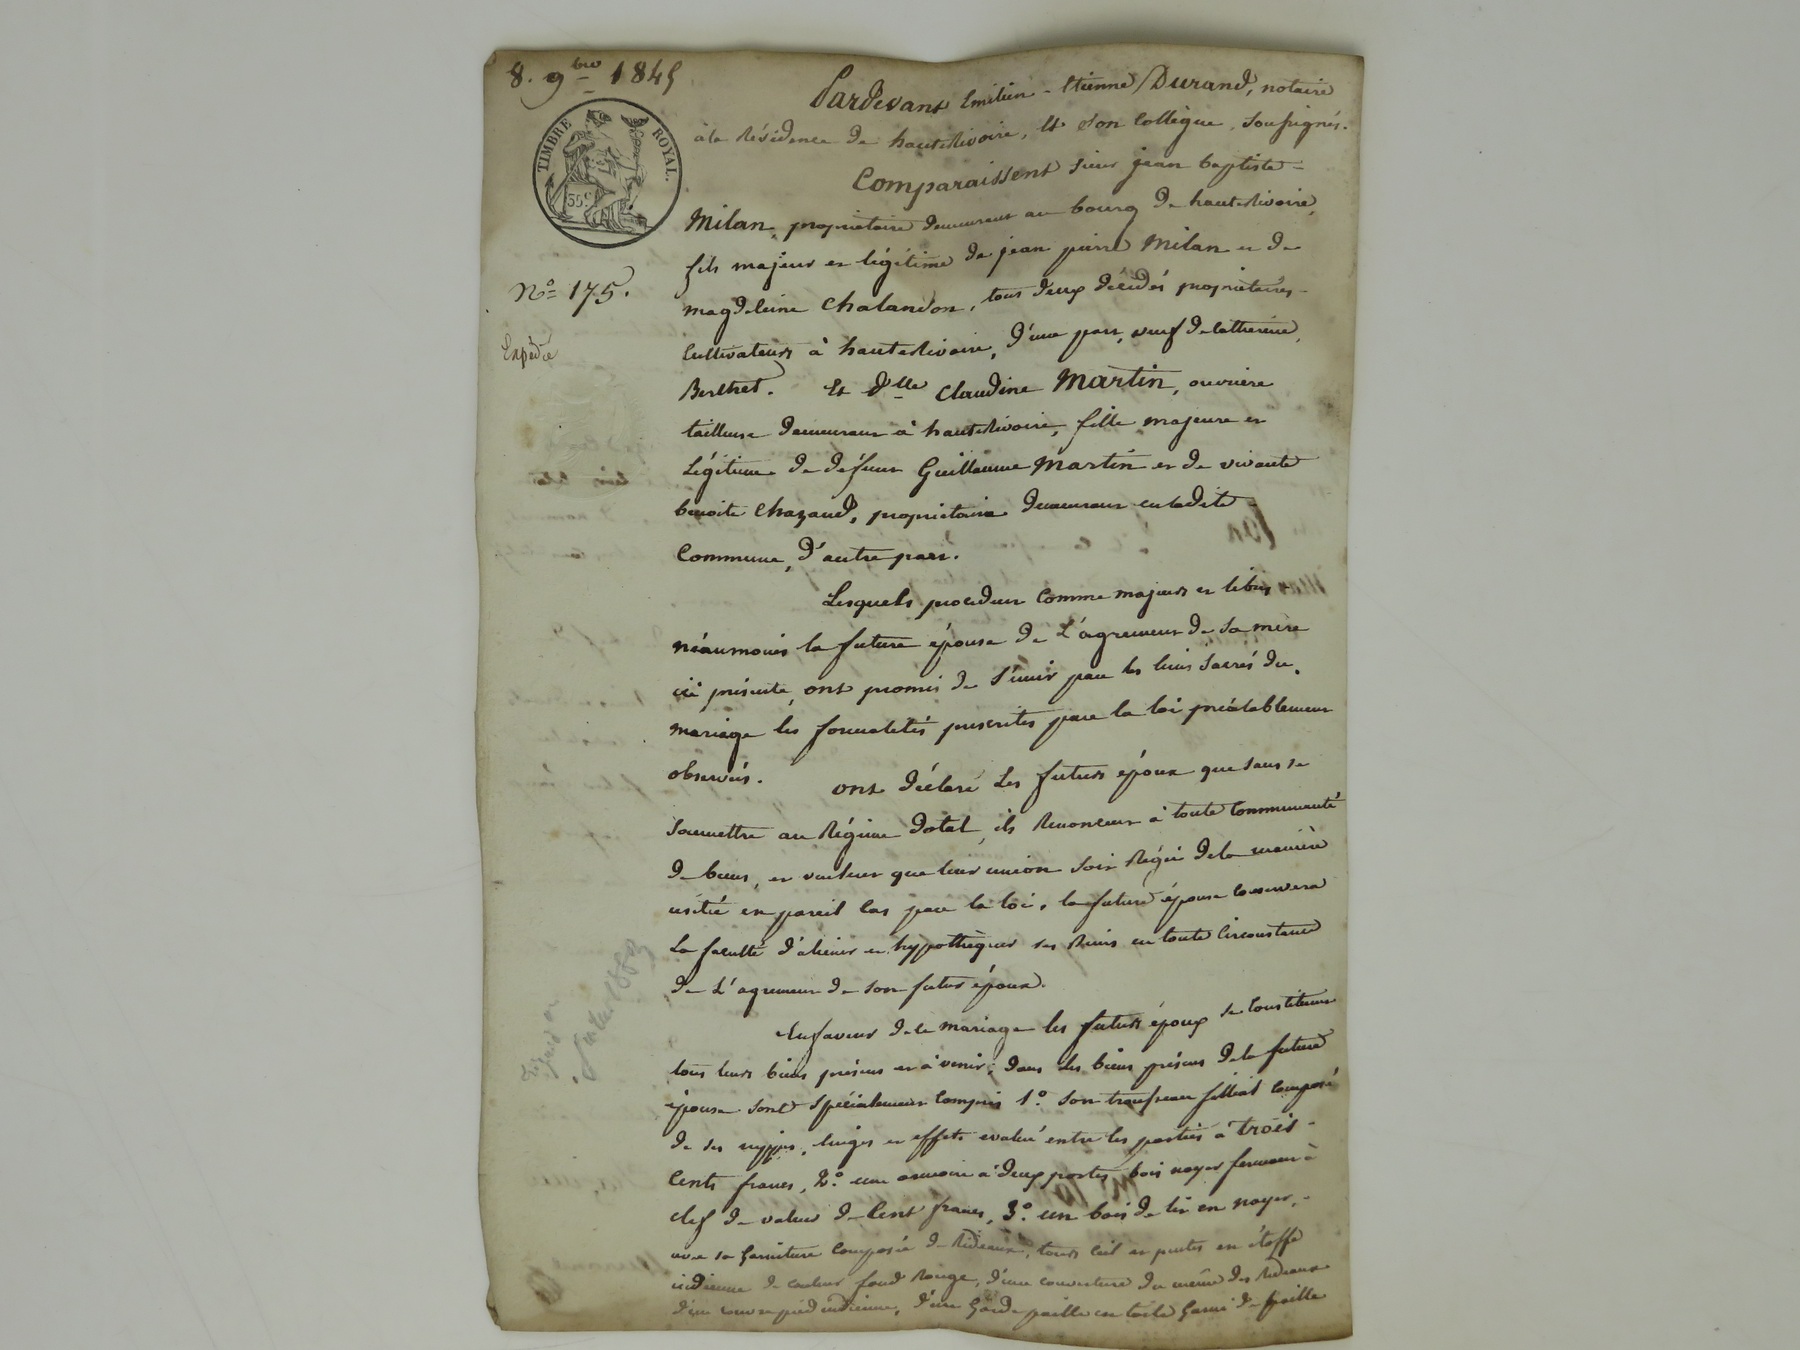 8. 9bre 1845
TIMBRE ROYAL.
35c
N° 175.
Expédié
Pardevant Emilien-Etienne Durand, notaire
à la Résidence de hauterivoire, et son Collègue, soussignés.
Comparaissent sieur jean baptiste
Milan, propriétaire demeurant au bourg de hauterivoire,
fils majeur et légitime de jean pierre Milan et de
magdeleine Chalandon, tous deux décédés propriétaires
Cultivateurs à hauterivoire, d'une part, veuf de Catherine
Berthet. Et dlle Claudine Martin, ouvrière
tailleuse demeurant à hauterivoire, fille majeure et
Légitime de défunt Guillaume Martin et de vivante
benoite Chazaud, propriétaire demeurant en ladite
Commune, d'autre part.
Lesquels procédant Comme majeurs et libres
néanmoins la future épouse de L'agrément de sa mère
ici présente, ont promis de s'unir par les liens sacrés du
mariage les formalités prescrites par la loi préalablement
observées. ont déclaré Les futurs époux que sans se
soumettre au Régime dotal, ils Renoncent à toute Communauté
de biens, et veulent que leur union soit Régie de la manière
usitée en pareil Cas par la loi, la future épouse Conservera
La faculté d'aliéner et hypothéquer ses biens en toute Circonstance
de L'agrément de son futur époux.
En faveur de ce mariage les futurs époux se Constituent
tous leurs biens présens et à venir; dans les biens présens de la future
épouse sont spécialement Compris 1° son trousseau filial Composé
de ses nippes, linges et effets évalué entre les parties à trois
Cents francs, 2° une armoire à deux portes bois noyer fermant à
clef de valeur de Cent francs, 3° un bois de lit en noyer,
avec sa Garniture Composée de Rideaux, tours Ciel et pentes en étoffe
indienne de couleur fond Rouge, d'une couverture du même des Rideaux
d'un couvre pied indienne, d'une Garde paille en toile Garni de paille